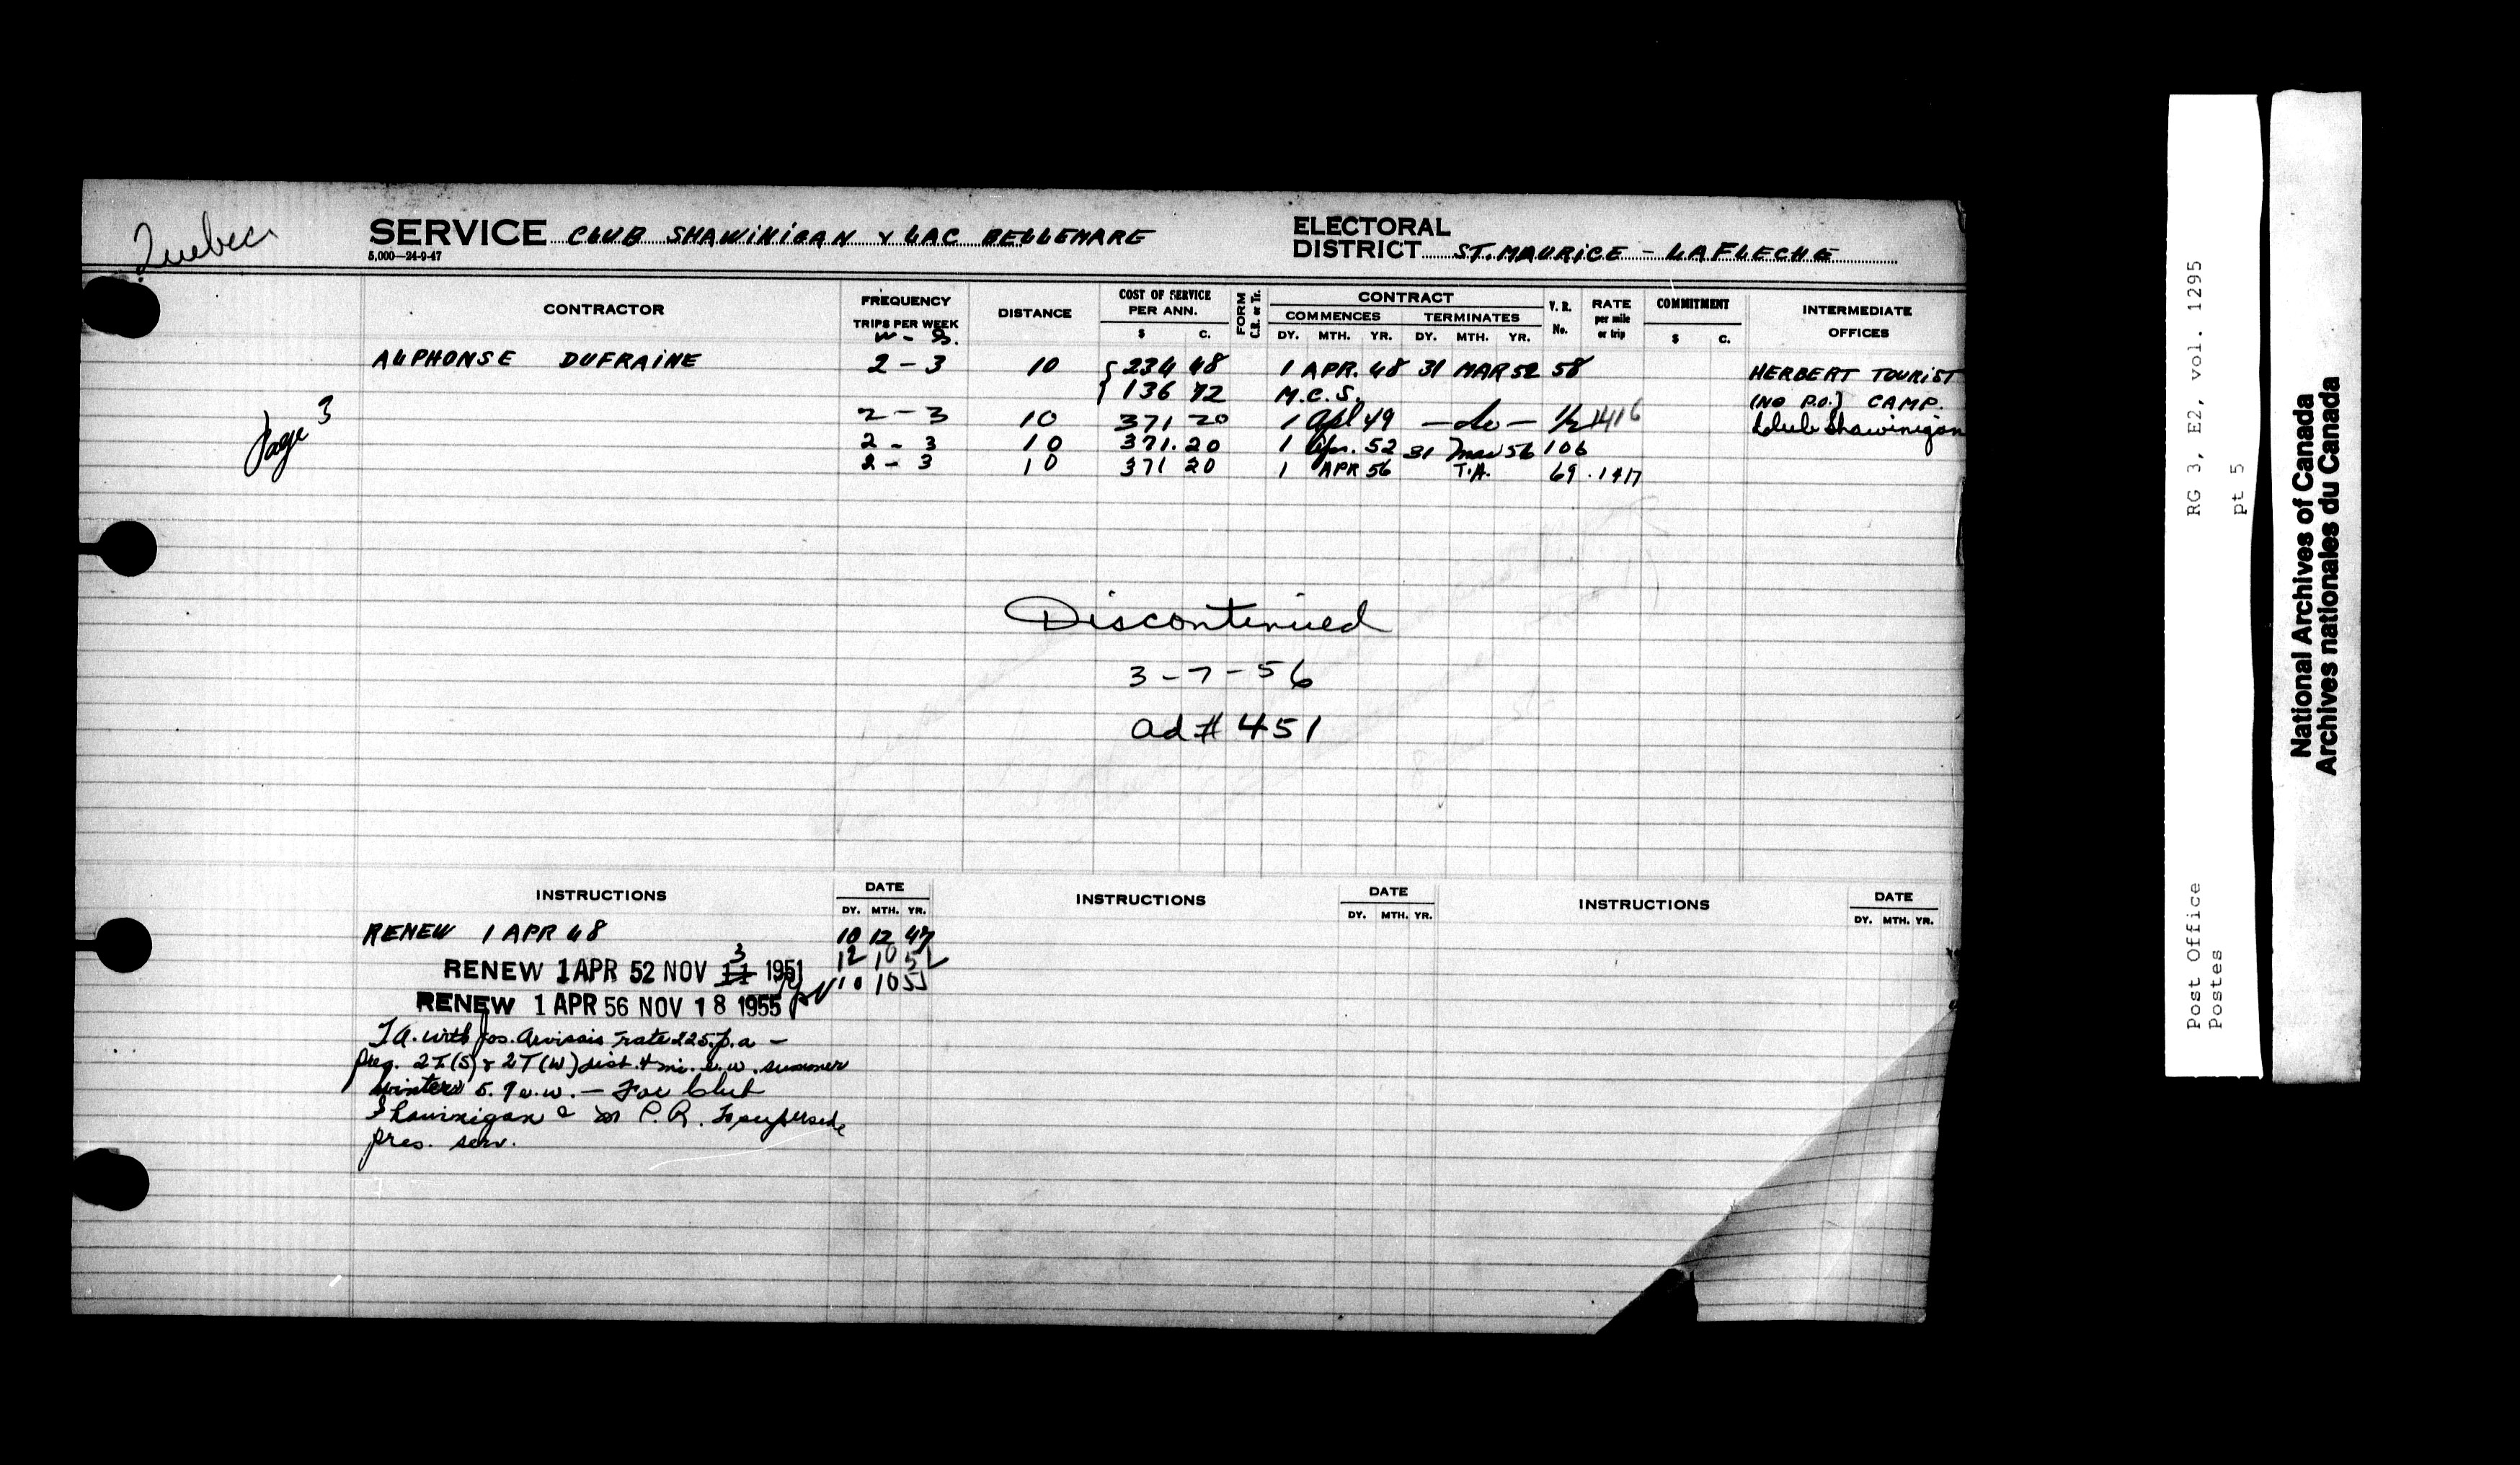 Quebec
SERVICE CLUB SHAWINIGAN & LAC BELLEMARE
5,000—24-9-47
ELECTORAL
DISTRICT ST. MAURICE - LAFLECHE
CONTRACTOR FREQUENCY TRIPS PER WEEK DISTANCE COST OF SERVICE PER ANN. $ C. FORM C.R. or Tr. CONTRACT COMMENCES DY. MTH. YR. TERMINATES DY. MTH. YR. V. R. No. RATE per mile or trip COMMITMENT $ C. INTERMEDIATE OFFICES
W - S.
ALPHONSE DUFRAINE 2 - 3 10 { 234 48 1 APR. 48 31 MAR 52 58 HERBERT TOURIST
136 72 M.C.S. (NO P.O.) CAMP.
Page 3
2 - 3 10 371 20 1 Apl 49 — do — 1416 Club Shawinigan
2 - 3 10 371.20 1 Apr. 52 31 Mar 56 106
2 - 3 10 371 20 1 APR 56 T.A. 69 .1417
Discontinued
3-7-56
ad # 451
INSTRUCTIONS DATE DY. MTH. YR. INSTRUCTIONS DATE DY. MTH. YR. INSTRUCTIONS DATE DY. MTH. YR.
RENEW 1 APR 48 10 12 47
RENEW 1 APR 52 NOV 11 3 1951 12 10 51
RENEW 1 APR 56 NOV 18 1955 10 10 55
T.A. with Jos. rate 225. p.a —
freq. 2T(S) & 2T(W) dist. 4 mi. e.w. summer
winter 5.7 e.w. — For Club
Shawinigan & C.R. To supersede
pres. serv.
RG 3, E2, vol. 1295
pt 5
Post Office
Postes
National Archives of Canada
Archives nationales du Canada